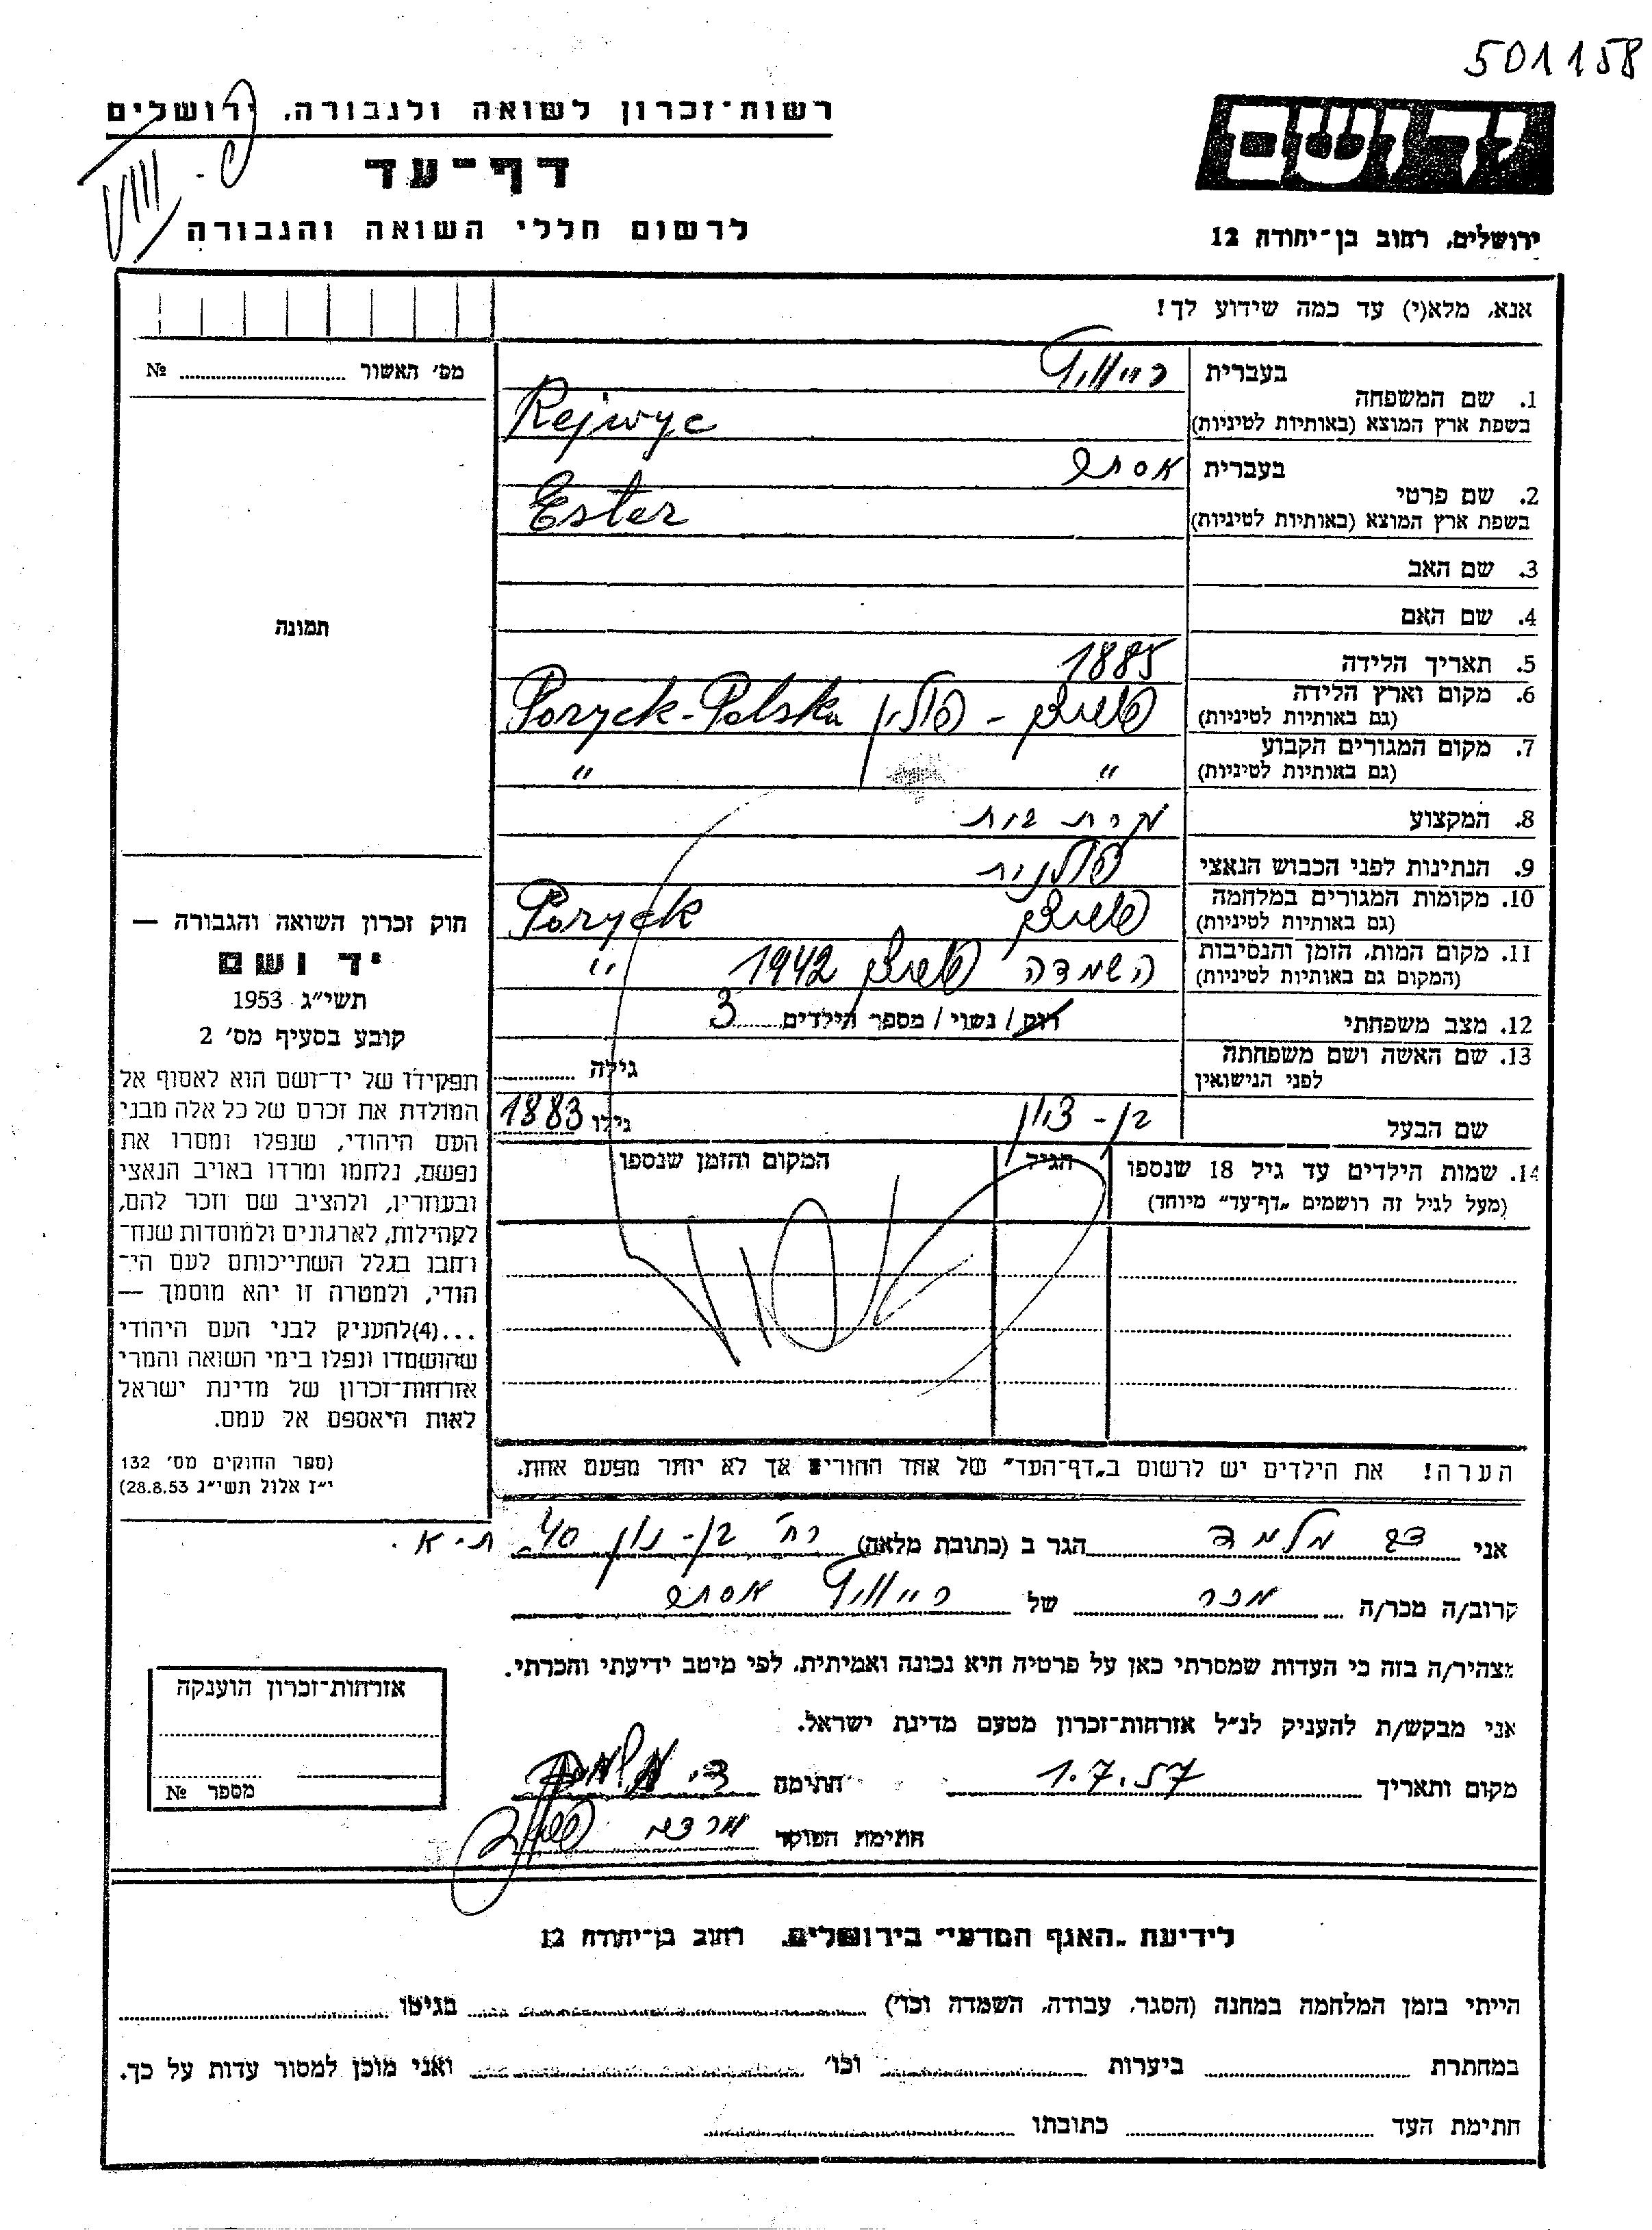 501158
רשות־זכרון לשואה ולגבורה, ירושלים
דף־עד
לרשום חללי השואה והגבורה
VIII
יד ושם
ירושלים, רחוב בן־יהודה 12
אנא, מלא(י) עד כמה שידוע לך!
מס׳ האשור № ........
1. שם המשפחה
בעברית
בשפת ארץ המוצא (באותיות לטיניות) Rejwyc
2. שם פרטי
בעברית אסתר
בשפת ארץ המוצא (באותיות לטיניות) Ester
3. שם האב
4. שם האם
תמונה
5. תאריך הלידה 1885
6. מקום וארץ הלידה
(גם באותיות לטיניות) פוריצק - פולין Poryck-Polska
7. מקום המגורים הקבוע
(גם באותיות לטיניות) " "
8. המקצוע עקרת בית
9. הנתינות לפני הכבוש הנאצי פולנית
10. מקומות המגורים במלחמה
(גם באותיות לטיניות) פוריצק Poryck
11. מקום המות, הזמן והנסיבות
(המקום גם באותיות לטיניות) השמדה פוריצק 1942 "
12. מצב משפחתי רווק / נשוי / מספר הילדים 3
13. שם האשה ושם משפחתה
לפני הנישואין גילה ........
שם הבעל בן-ציון גילו 1883
14. שמות הילדים עד גיל 18 שנספו
(מעל לגיל זה רושמים „דף־עד״ מיוחד)
הגיל
המקום והזמן שנספו
הערה! את הילדים יש לרשום ב„דף־העד״ של אחד ההורים אך לא יותר מפעם אחת.
חוק זכרון השואה והגבורה —
יד ושם
תשי״ג 1953
קובע בסעיף מס׳ 2
תפקידו של יד־ושם הוא לאסוף אל
המולדת את זכרם של כל אלה מבני
העם היהודי, שנפלו ומסרו את
נפשם, נלחמו ומרדו באויב הנאצי
ובעוזריו, ולהציב שם וזכר להם,
לקהילות, לארגונים ולמוסדות שנח־
רחבו בגלל השתייכותם לעם הי־
הודי, ולמטרה זו יהא מוסמך —
...(4)להעניק לבני העם היהודי
שהושמדו ונפלו בימי השואה והמרי
אזרחות־זכרון של מדינת ישראל
לאות היאספם אל עמם.
(ספר החוקים מס׳ 132
י״ז אלול תשי״ג 28.8.53)
אני דב מלמד הגר ב (כתובת מלאה) רח׳ בן-נון 40 ת-א.
קרוב/ה מכר/ה מכר של אסתר
מצהיר/ה בזה כי העדות שמסרתי כאן על פרטיה היא נכונה ואמיתית, לפי מיטב ידיעתי והכרתי.
אני מבקש/ת להעניק לנ״ל אזרחות־זכרון מטעם מדינת ישראל.
מקום ותאריך 1.7.57 חתימה ד. מלמד
חתימת הפוקד
אזרחות־זכרון הוענקה
מספר №
לידיעת „האגף המדעי״ בירושלים, רחוב בן־יהודה 12
הייתי בזמן המלחמה במחנה (הסגר, עבודה, השמדה וכו׳) ........ בגיטו ........
במחתרת ........ ביערות ........ וכו׳ ........ ואני מוכן למסור עדות על כך.
חתימת העד ........ כתובתו ........